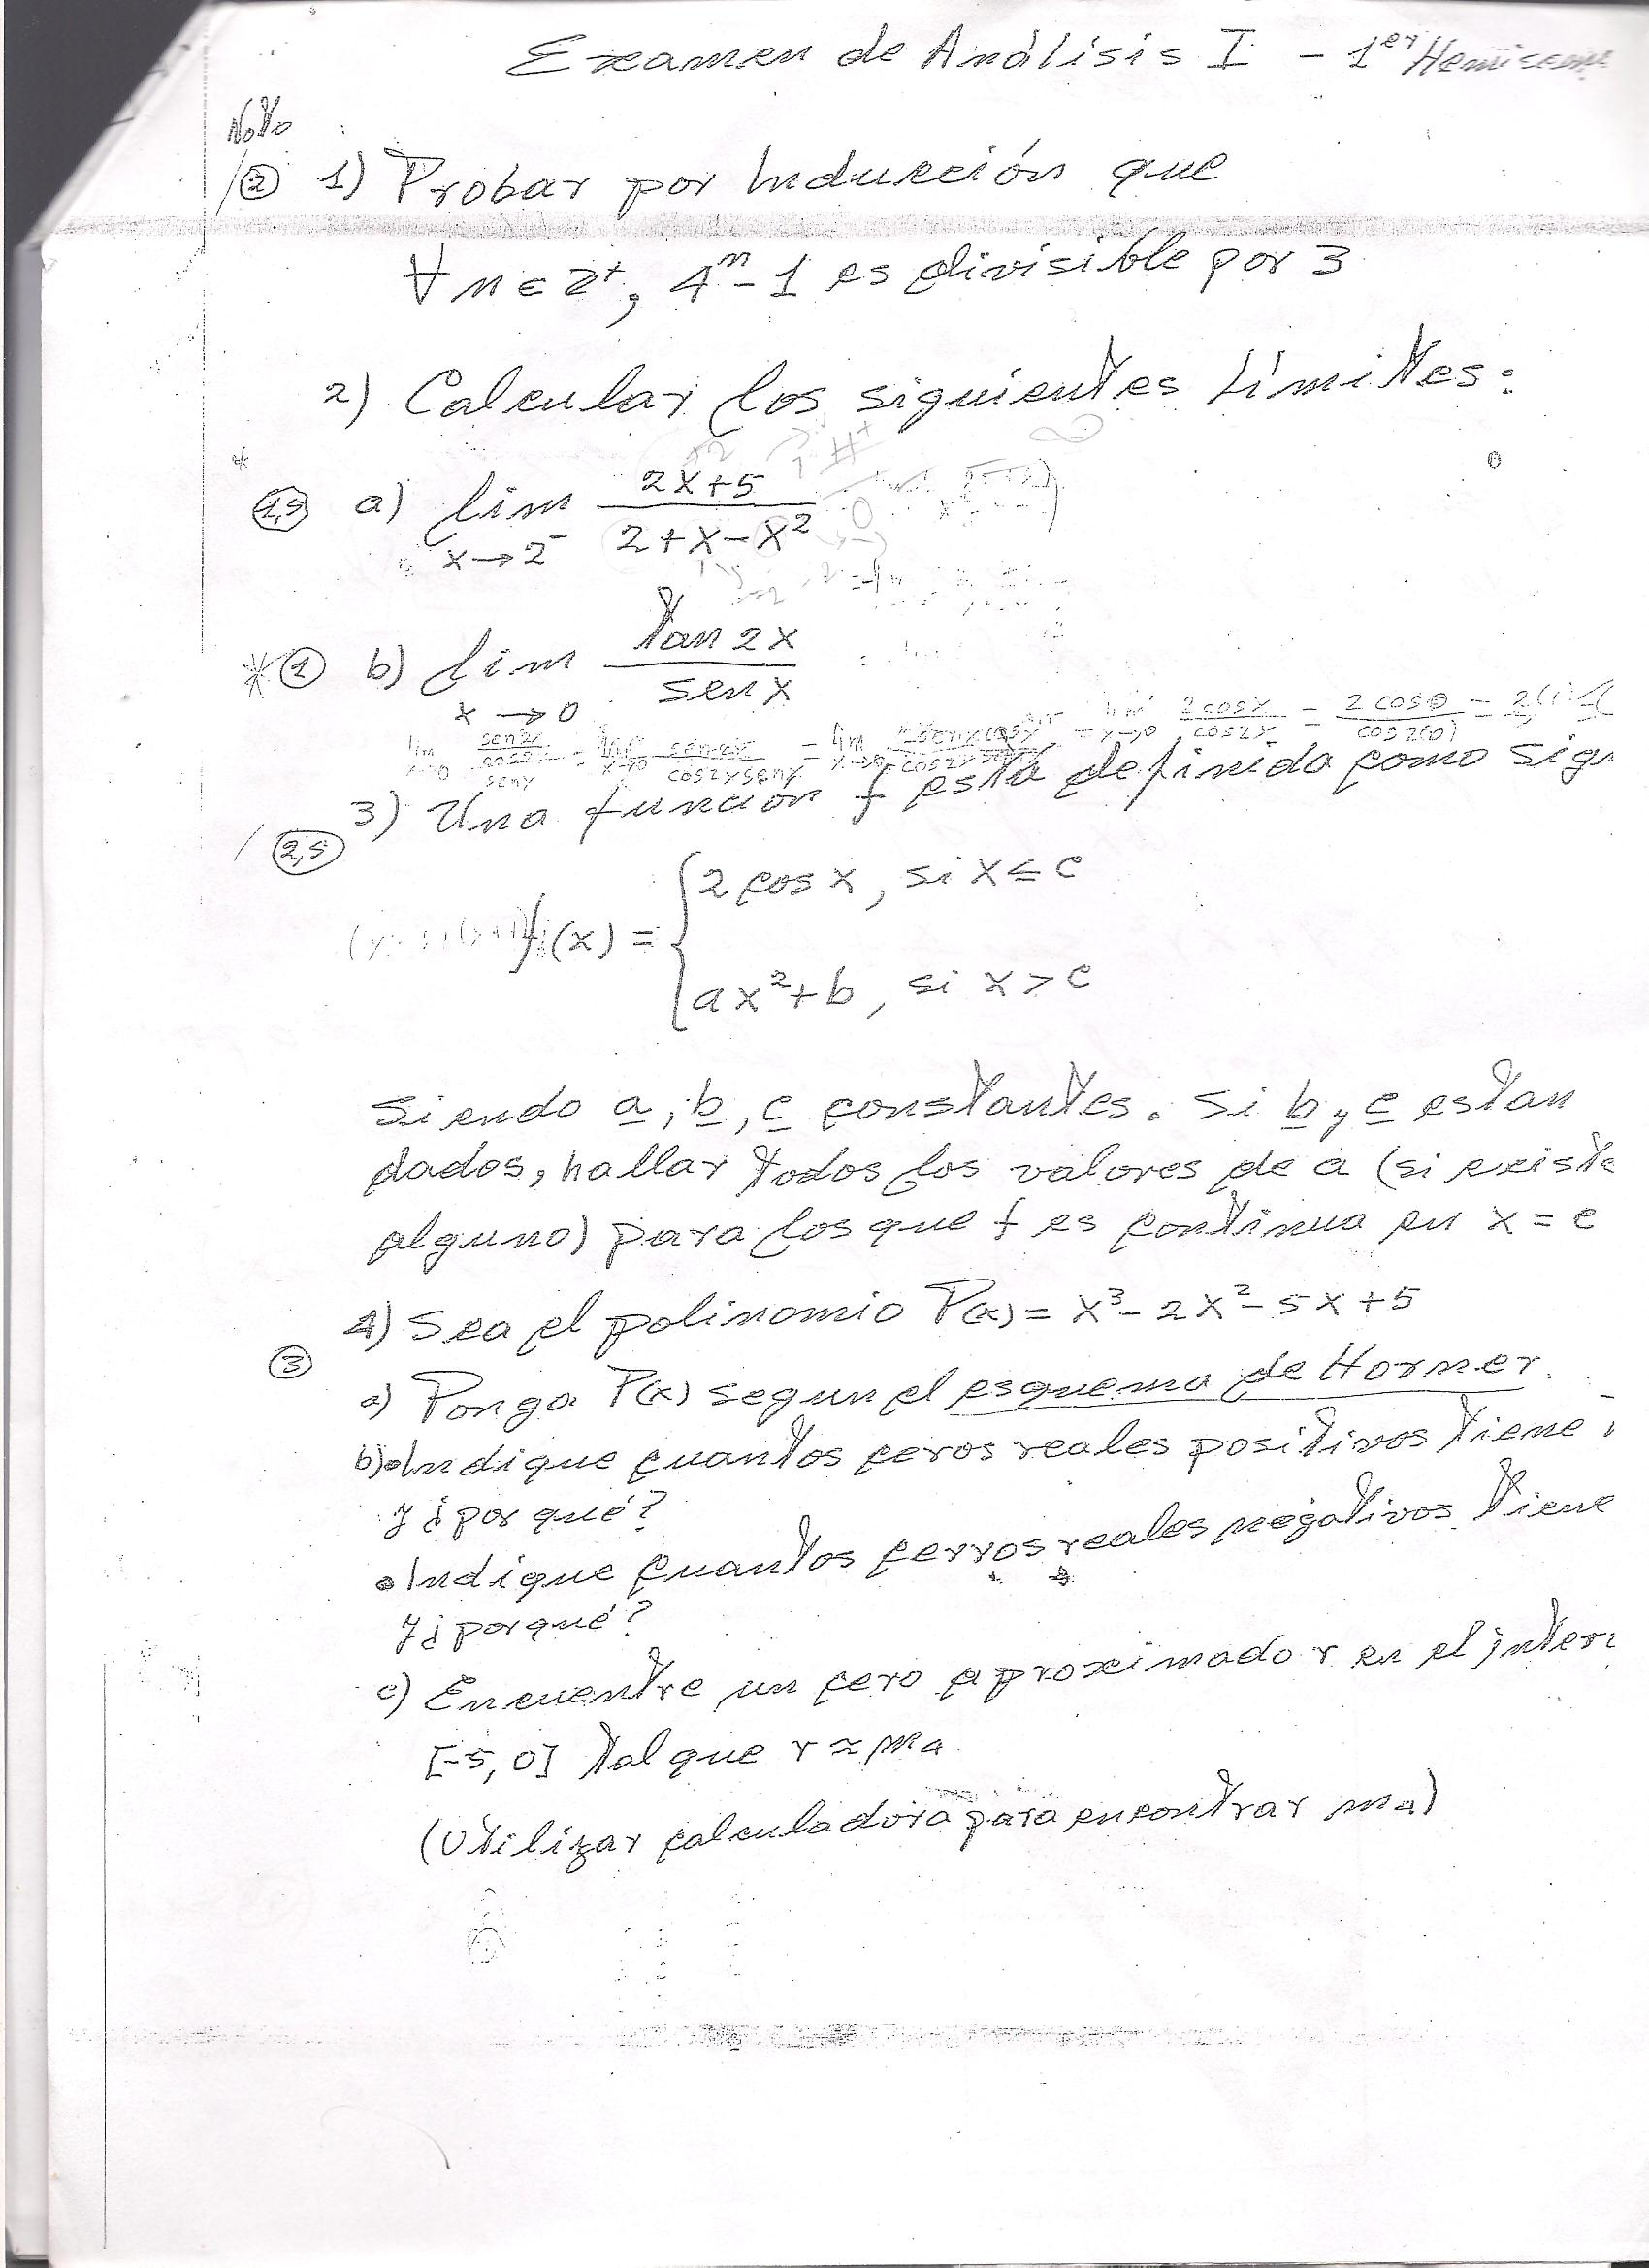 Examen de Análisis I - 1er
Nota
② 1) Probar por Inducción que
∀ n ∈ Z⁺, 4ⁿ-1 es divisible por 3
2) Calcular los siguientes Límites:
a) lim x→2⁻ (2x+5)/(2+x-x²)
* ① b) lim x→0 (tan 2x)/(sen x)
2cosx/cos2x = 2cos0/cos2(0)
3) Una función f está definida como
2,5
f(x) = { 2 cos x, si x ≤ c
ax²+b, si x > c
Siendo a, b, c constantes. Si b y c estan
dados, hallar todos los valores de a (si existe
alguno) para los que f es continua en x = c
4) Sea el polinomio P(x) = x³-2x²-5x+5
③
a) Ponga P(x) segun el esquema de Horner.
b) • Indique cuantos ceros reales positivos tiene
y ¿por qué?
• Indique cuantos cerros reales negativos tiene
y ¿por qué?
c) Encuentre un cero aproximado r en el
[-5, 0] tal que r ≈ m₄
(Utilizar calculadora para encontrar m₄)